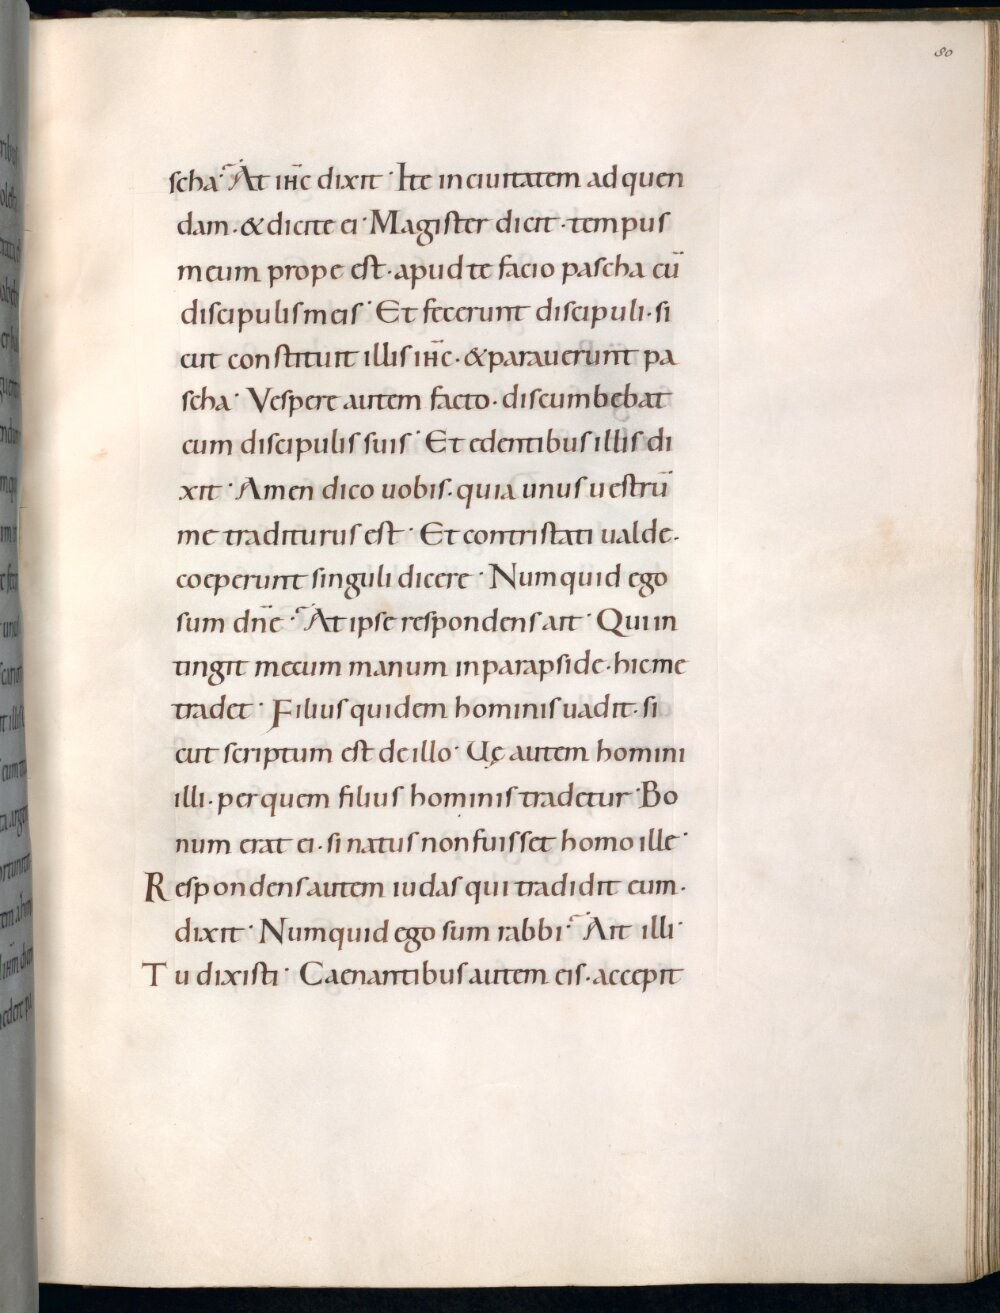 80
scha· At ihc̄ dixit· Ite in ciuitatem ad quen
dam· & dicite ei· Magister dicit· tempus
meum prope est· apud te facio pascha cū
discipulis meis· Et fecerunt discipuli· si
cut constituit illis ihc̄· & parauerunt pa
scha· Vespere autem facto· discumbebat
cum discipulis suis· Et edentibus illis di
xit· Amen dico uobis· quia unus uestrū
me traditurus est· Et contristati ualde·
coeperunt singuli dicere· Numquid ego
sum dnē· At ipse respondens ait· Qui in
tingit mecum manum in parapside· hic me
tradet· Filius quidem hominis uadit· si
cut scriptum est de illo· Uę autem homini
illi· per quem filius hominis tradetur· Bo
num erat ei· si natus non fuisset homo ille·
Respondens autem iudas qui tradidit eum·
dixit· Numquid ego sum rabbi· Ait illi·
Tu dixisti· Caenantibus autem eis· accepit